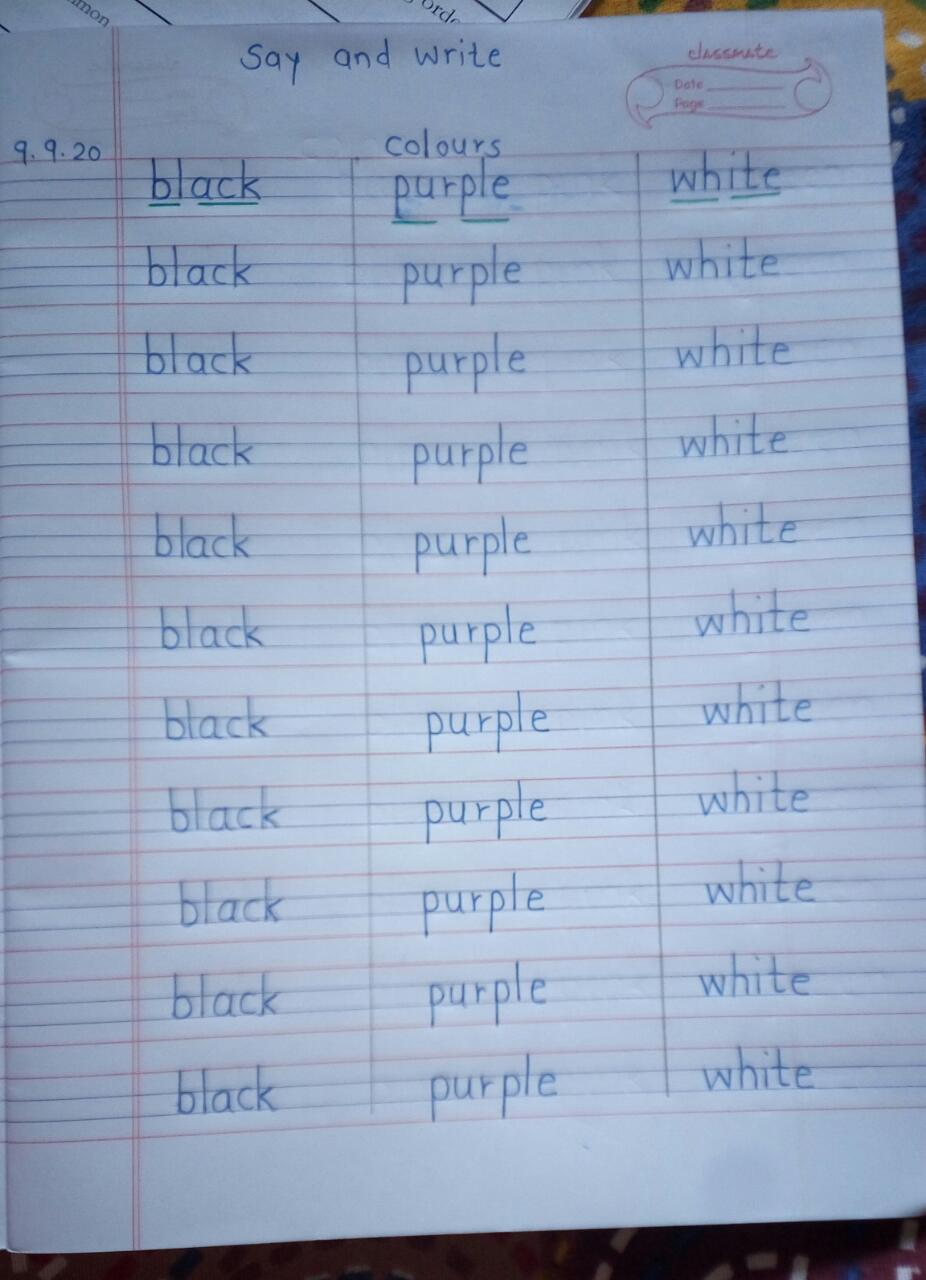 mon
orde
Say and write
classmate
Date
Page
9.9.20
colours
black purple white
black purple white
black purple white
black purple white
black purple white
black purple white
black purple white
black purple white
black purple white
black purple white
black purple white